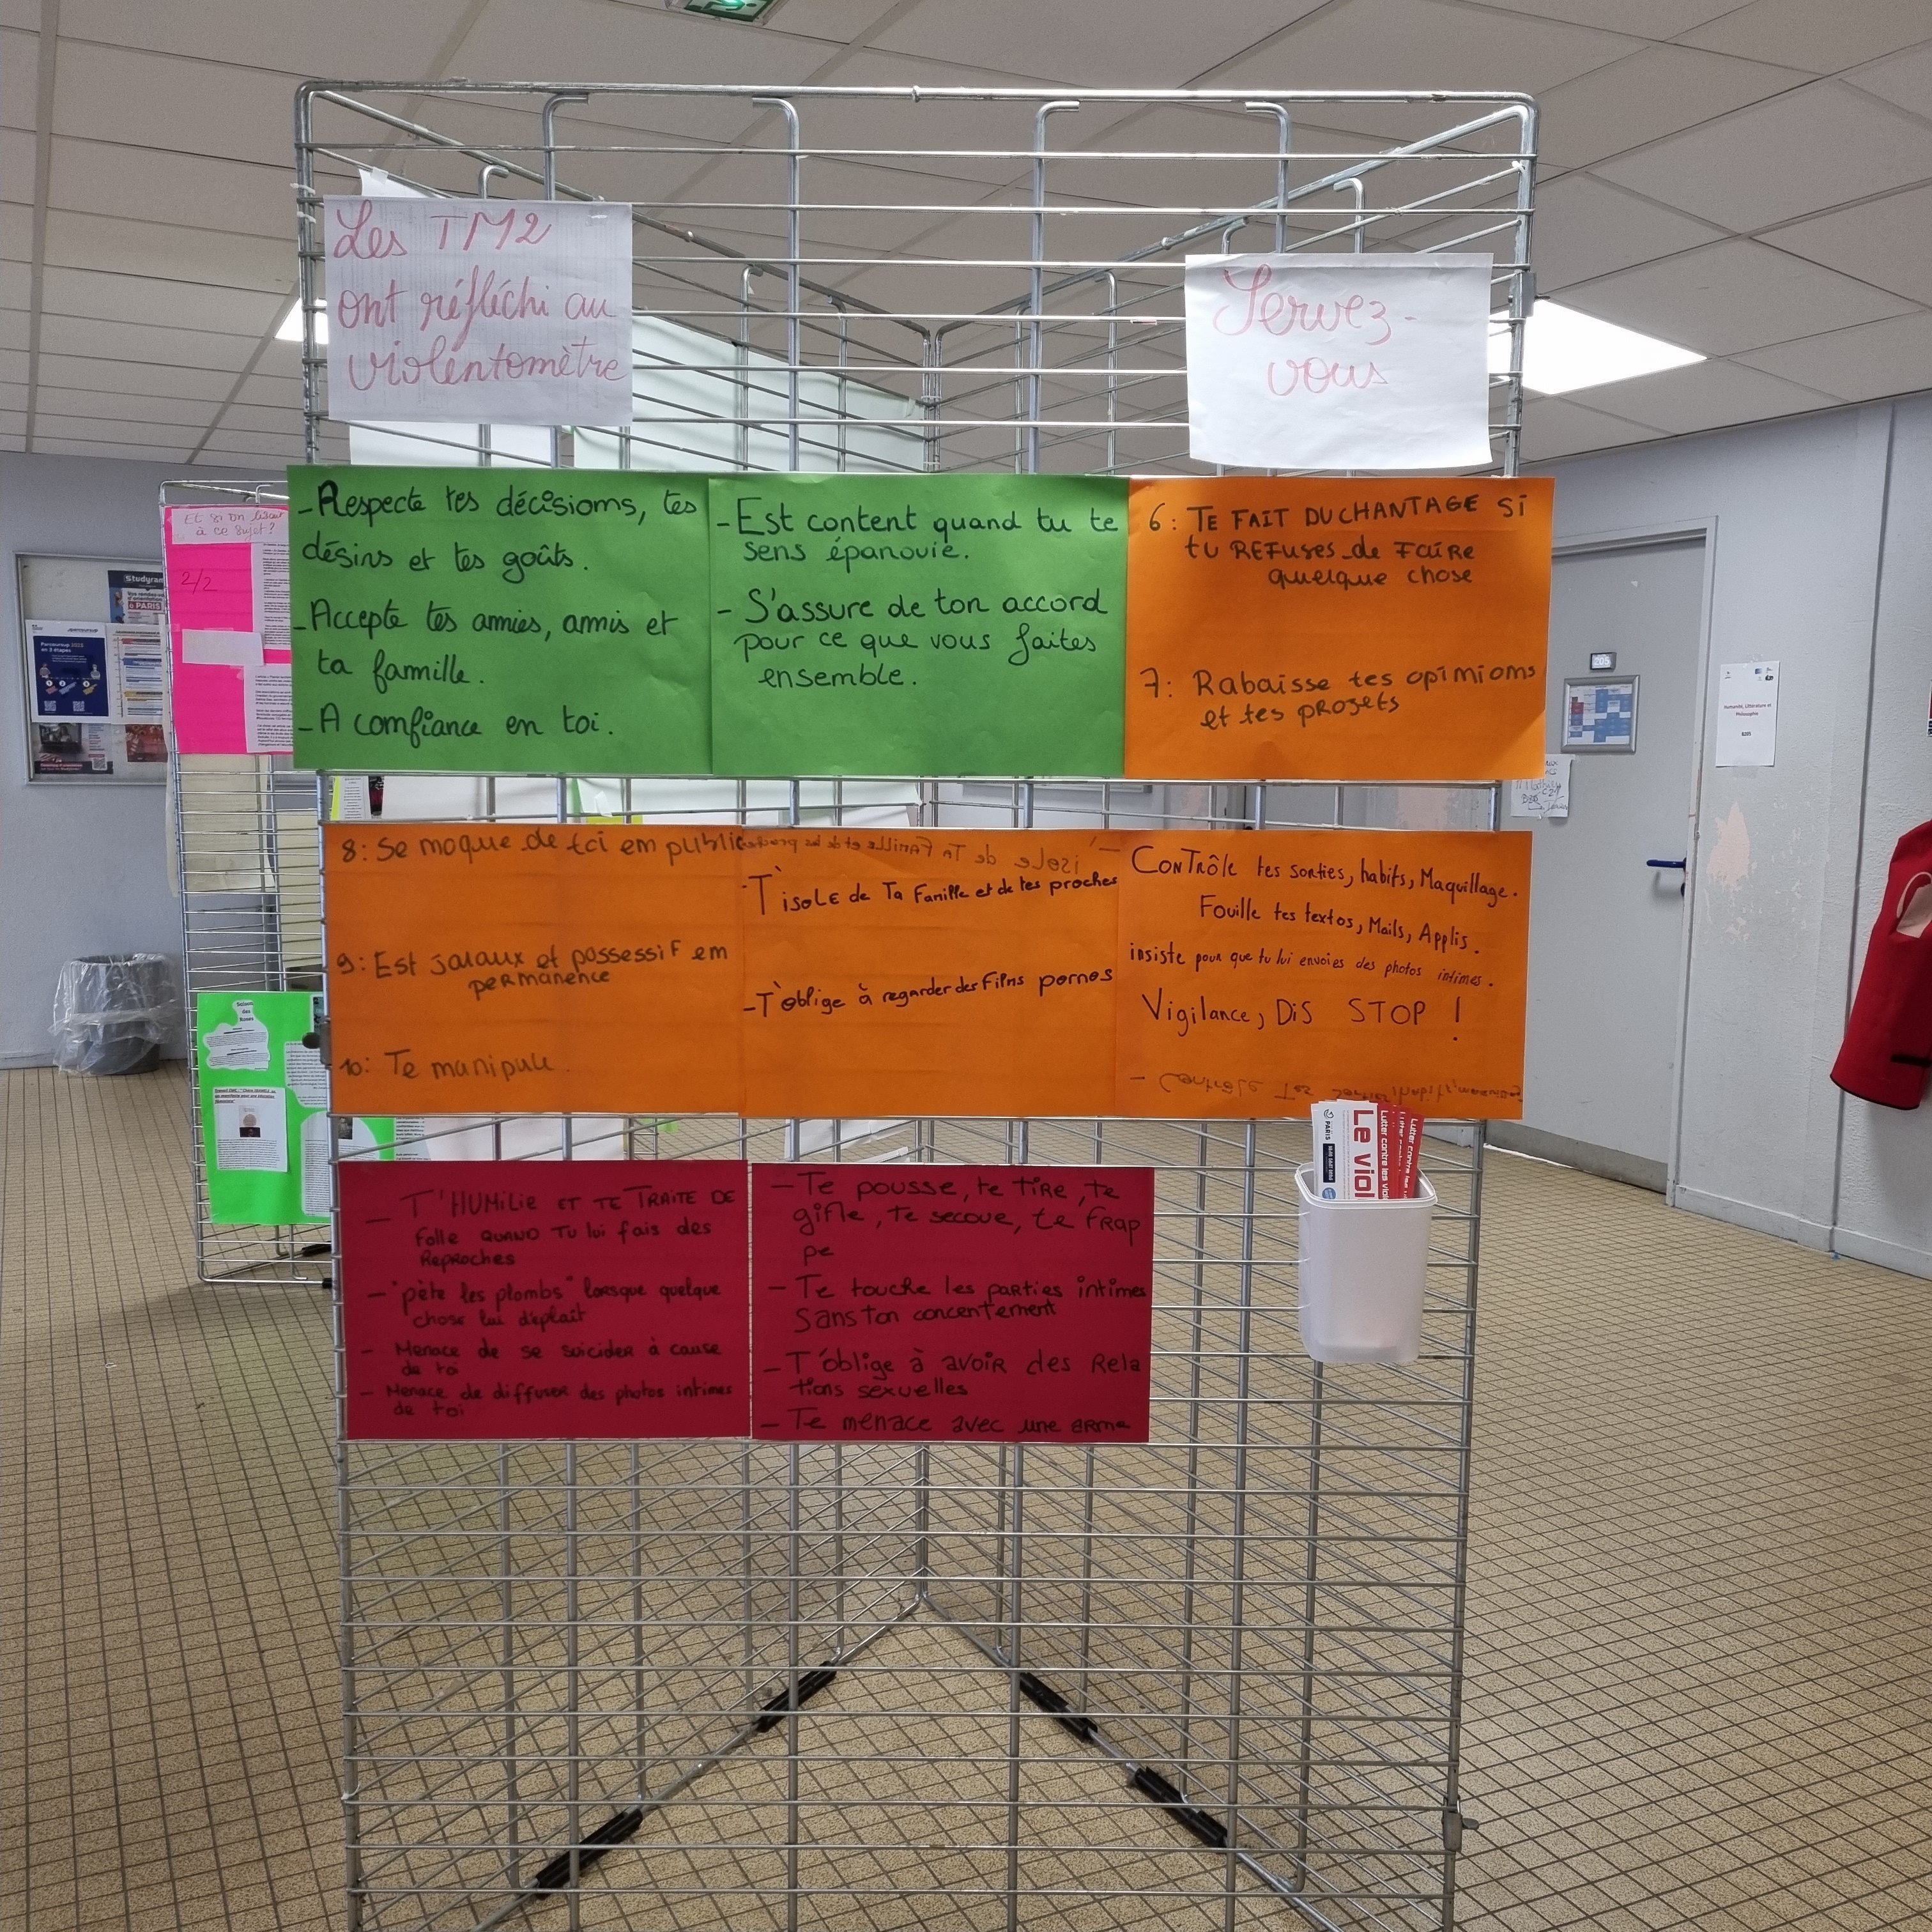 Les TM2
ont réfléchi au
violentomètre
Servez-
vous
-Respecte tes décisioms, tes
désirs et tes goûts.
-Accepte tes amies, amis et
ta famille.
-A comfiance en toi.
-Est content quand tu te
sens épanouie.
- S'assure de ton accord
pour ce que vous faites
ensemble.
6: TE FAIT DU CHANTAGE SI
tu REFuses de FaiRe
quelque chose
7: Rabaisse tes opimioms
et tes projets
8: Se moque de toi em public
9: Est jaloux et possessif em
permanence
10: Te manipule.
-T'isole de Ta Famille et de tes proches
-T'oblige à regarder des Films pornos
Contrôle tes sorties, habits, Maquillage.
Fouille tes textos, Mails, Applis.
insiste pour que tu lui envoies des photos intimes.
Vigilance, Dis STOP !
- T'HUMILIE ET TE TRAITE DE
folle QUAND TU lui fais des
Reproches
- "pète les plombs" lorsque quelque
chose lui déplait
- Menace de se suicider à cause
de toi
- Menace de diffuser des photos intimes
de toi
- Te pousse, te tire, te
gifle, te secoue, te FRap
pe
- Te touche les parties intimes
sans ton concentement
- T'oblige à avoir des Rela
tions sexuelles
- Te menace avec une arme
Et si on lisait
à ce sujet?
2/2
Studyram
à PARIS
Parcoursup 2023
en 3 étapes
205
Humanité, Littérature et
Philosophie
B205
PARIS
Le viol
Lutter contre les viol